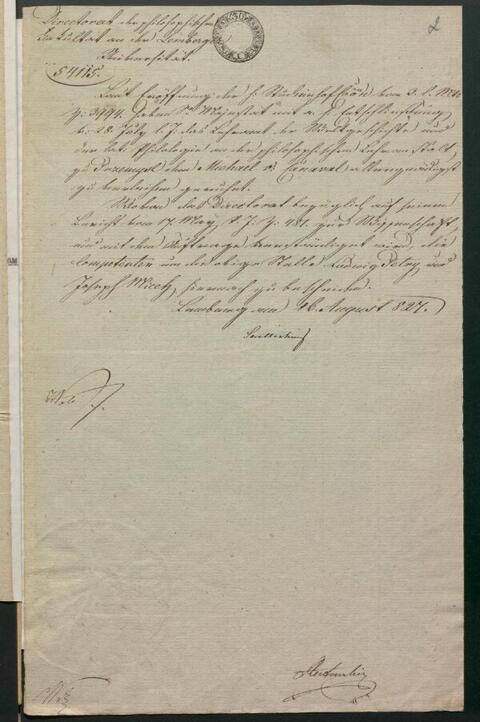 Directorat der philosophischen
Fakultät an der Lemberger
Universität.
2
54115.
Laut Eröffnung der h. Studienhofkōon vom 3. l. Mts
Z: 3994. haben Se Majestät mit a. h. Entschließung
v. 18. July l. J. das Lehramt der Weltgeschichte und
der lat: Philologie an der philosophischen Lehranstalt
zu Przemysl dem Michael v. Canaval allergnädigst
zu verleihen geruhet.
Wovon das Directorat bezüglich auf seinen
Bericht vom 7. May l. J. Z. 451. zur Wissenschaft,
und mit dem Auftrage verständiget wird, die
Competenten um die obige Stelle Ludwig und
Joseph hiernach zu bescheiden.
Lemberg am 16. August 827.